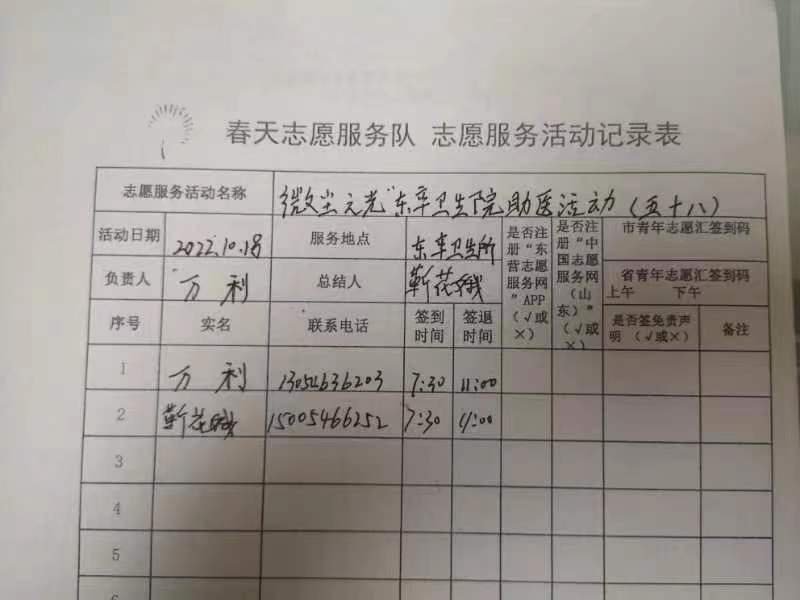 春天志愿服务队 志愿服务活动记录表
志愿服务活动名称 "微尘之光"东辛卫生院助医活动(五十八)
活动日期 2022.10.18 服务地点 东辛卫生所 是否注册“东营志愿服务网”APP(√或×) 是否注册“中国志愿服务网(山东)”(√或×) 市青年志愿汇签到码
负责人 万利 总结人 靳花娥 省青年志愿汇签到码
上午 下午
序号 实名 联系电话 签到时间 签退时间 是否签免责声明(√或×) 备注
1 万利 13054636203 7:30 11:00
2 靳花娥 15005466252 7:30 11:00
3
4
5
6